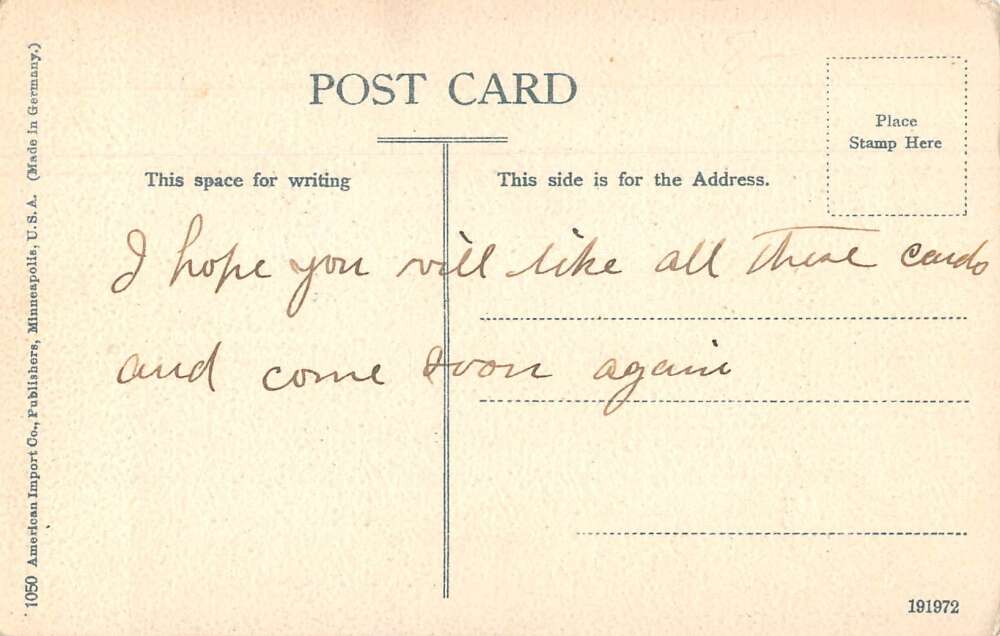 POST CARD
Place
Stamp Here
This space for writing
This side is for the Address.
I hope you will like all these cards
and come soon again
1050 American Import Co., Publishers, Minneapolis, U.S.A. (Made in Germany.)
191972